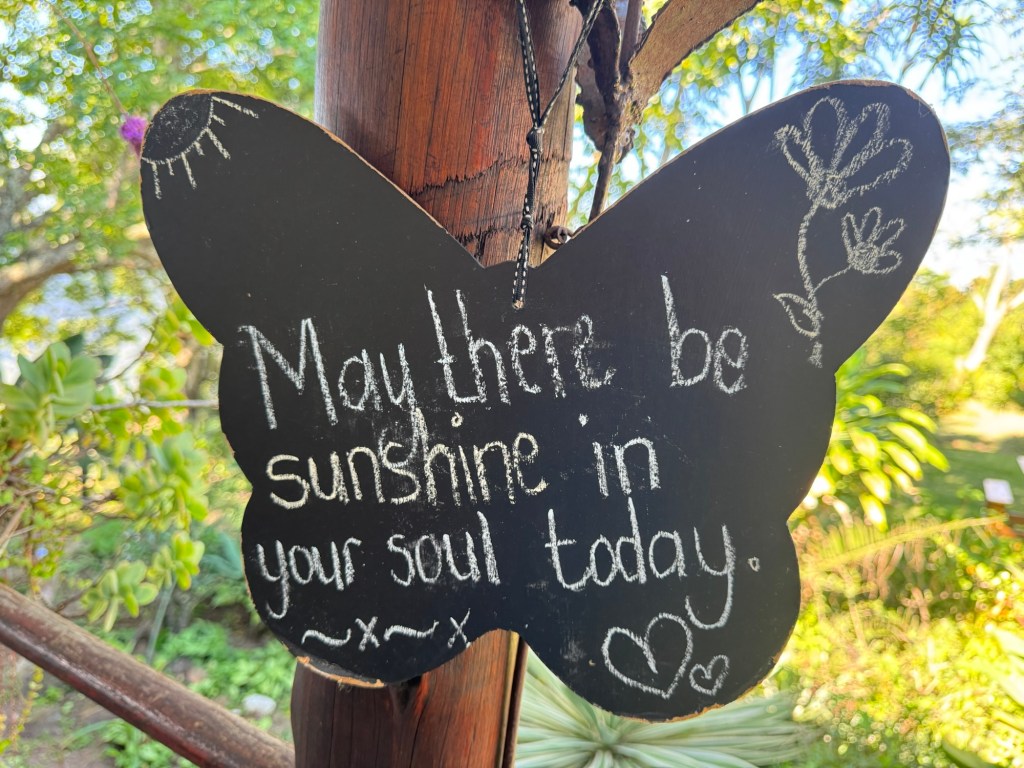 May there be
sunshine in
your soul today.
~x~x